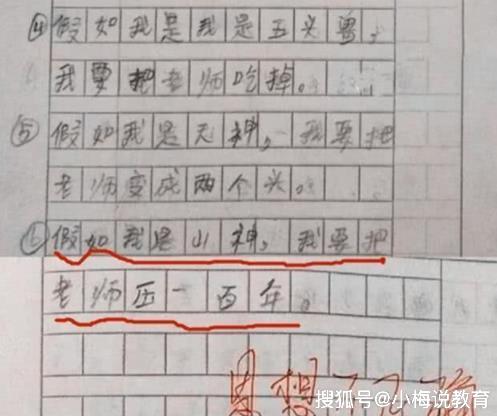 ④假如我是我是五头兽，
我要把老师吃掉。
⑤假如我是天神，我要把
老师变成两个头。
⑥假如我是山神，我要把
老师压一百年。
思想
搜狐号@小梅说教育